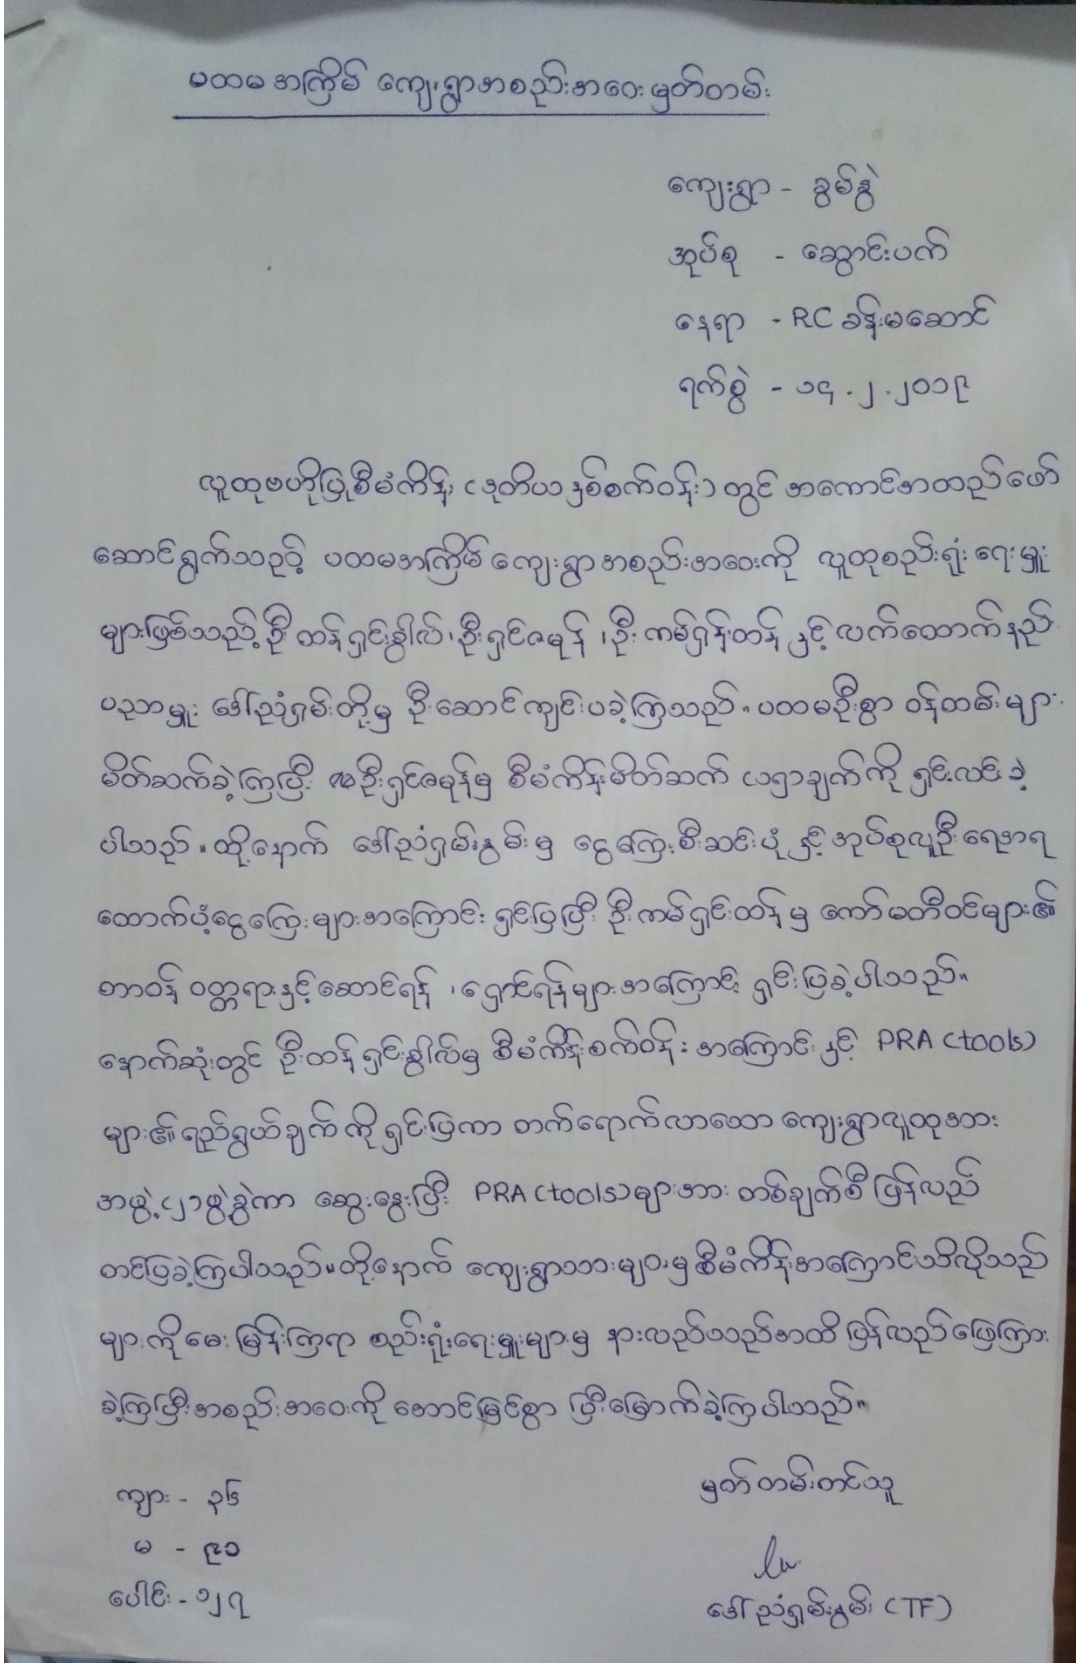 ပထမအကြိမ် ကျေးရွာအစည်းအဝေးမှတ်တမ်း
ကျေးရွာ - ခွမ်နွဲ
အုပ်စု - ဆွောင်းပက်
နေရာ - RC ခန်းမဆောင်
ရက်စွဲ - ၁၄.၂.၂၀၁၉
လူထုဗဟိုပြုစီမံကိန်း (ဒုတိယနှစ်စက်ဝန်း) တွင် အကောင်အထည်ဖော်
ဆောင်ရွက်သည့် ပထမအကြိမ် ကျေးရွာအစည်းအဝေးကို လူထုစည်းရုံးရေးမှူး
များဖြစ်သည့် ဦးထန်ရှင်းခွါလ်၊ ဦးရှင်ဇမုန်၊ ဦးကမ်ရှန်းထန် နှင့် လက်ထောက်နည်း
ပညာမှူး ဒေါ်ညုံရှမ်းတို့မှ ဦးဆောင်ကျင်းပခဲ့ကြသည်။ ပထမဦးစွာ ဝန်ထမ်းများ
မိတ်ဆက်ခဲ့ကြပြီး ဦးရှင်ဇမုန်မှ စီမံကိန်းမိတ်ဆက် (၁၅)ချက်ကို ရှင်းလင်းခဲ့
ပါသည်။ ထို့နောက် ဒေါ်ညုံရှမ်းနွမ်းမှ ငွေကြေးစီးဆင်းပုံ နှင့် အုပ်စုလူဦးရေအရ
ထောက်ပံ့ငွေကြေးများအကြောင်း ရှင်းပြပြီး ဦးကမ်ရှင်းထန်မှ ကော်မတီဝင်များ၏
တာဝန် ဝတ္တရားနှင့်ဆောင်ရန်၊ ရှောင်ရန်များအကြောင်း ရှင်းပြခဲ့ပါသည်။
နောက်ဆုံးတွင် ဦးထန်ရှင်းခွါလ်မှ စီမံကိန်းစက်ဝန်းအကြောင်းနှင့် PRA (tools)
များ၏ ရည်ရွယ်ချက်ကို ရှင်းပြကာ တက်ရောက်လာသော ကျေးရွာလူထုအား
အဖွဲ့(၂)ဖွဲ့ခွဲကာ ဆွေးနွေးပြီး PRA (tools)များအား တစ်ချက်စီ ပြန်လည်
တင်ပြခဲ့ကြပါသည်။ ထို့နောက် ကျေးရွာသားများမှ စီမံကိန်းအကြောင်းသိလိုသည်
များကို မေးမြန်းကြရာ စည်းရုံးရေးမှူးများမှ နားလည်သည်အထိ ပြန်လည်ဖြေကြား
ခဲ့ကြပြီး အစည်းအဝေးကို အောင်မြင်စွာ ပြီးမြောက်ခဲ့ကြပါသည်။
ကျား - ၃၆
မ - ၉၁
ပေါင်း - ၁၂၇
မှတ်တမ်းတင်သူ
ဒေါ်ညုံရှမ်းနွမ်း (TF)